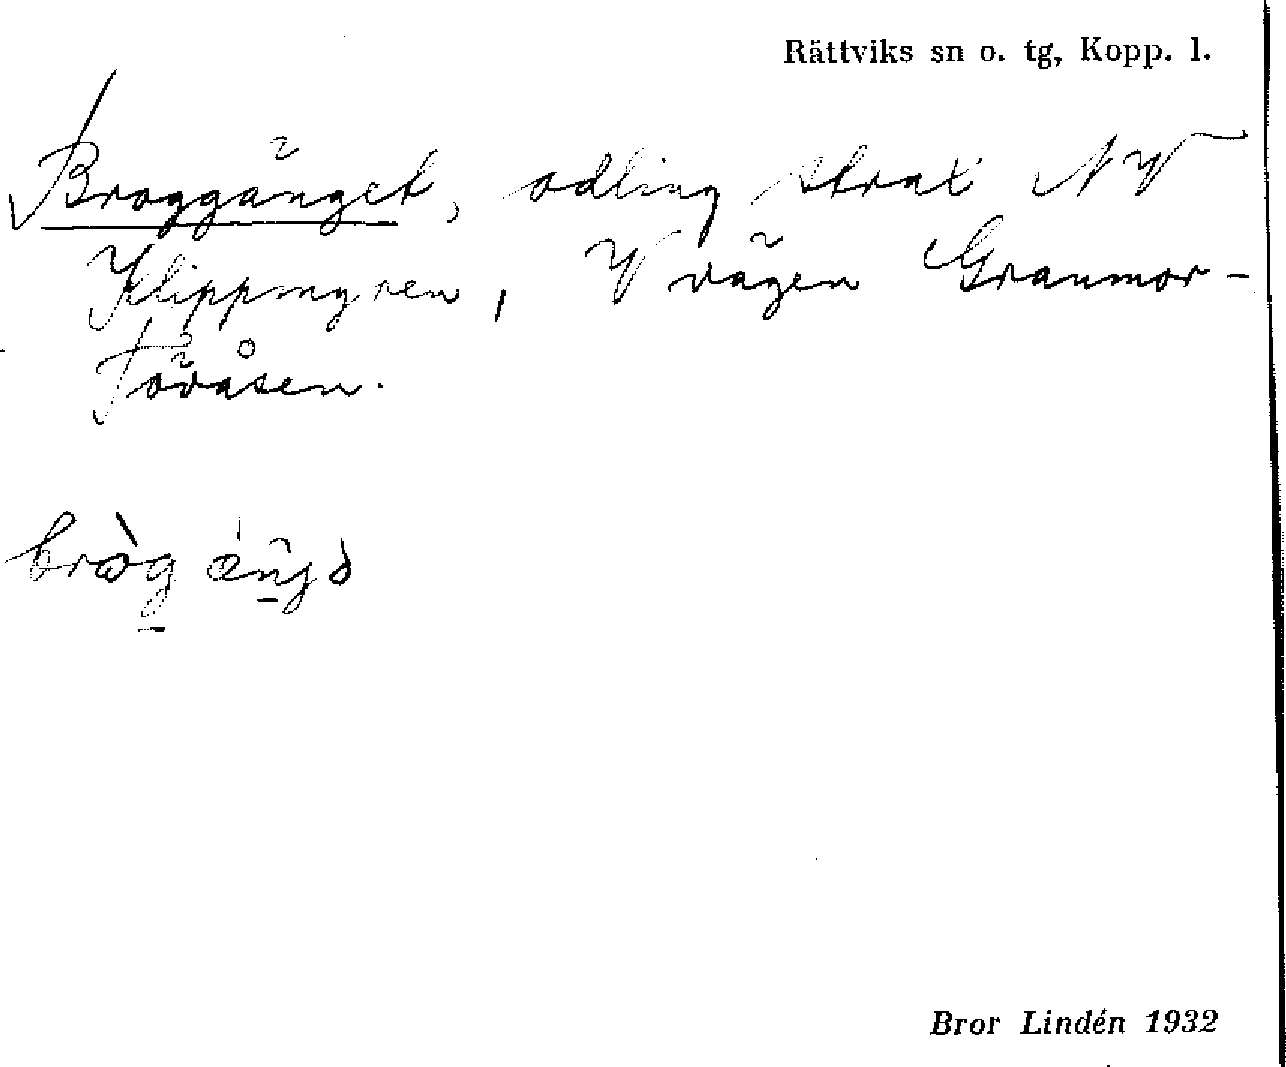 Rättviks sn o. tg, Kopp. l.
Broggänget, odling strax NV
Klippmyren, V vägen Granmor-
Töråsen.
Bror Lindén 1932